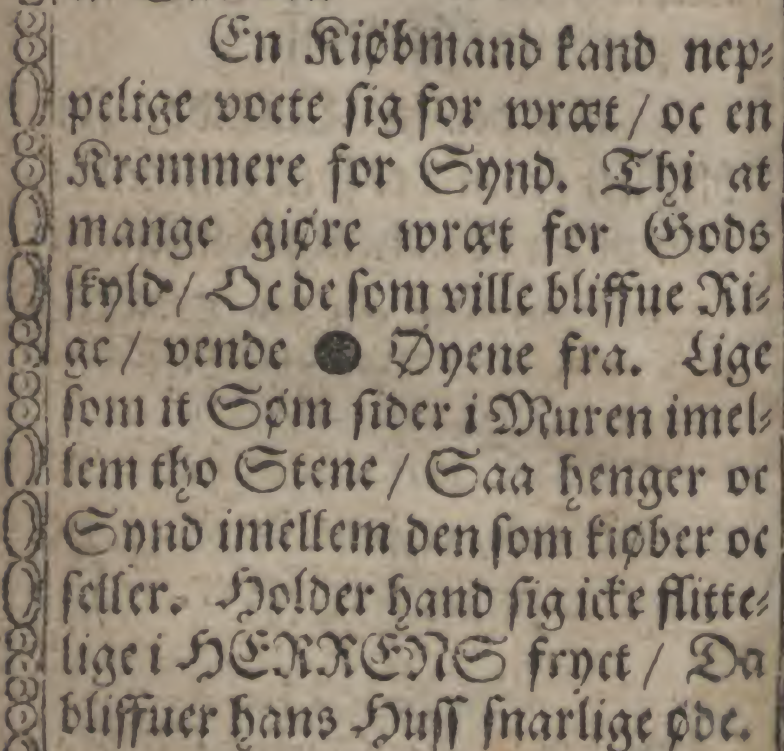 En Kiøbmand kand nep⸗
pelige vocte sig for wræt / oc en
Kremmere for Synd. Thi at
mange giøre wræt for Gods
skyld / Oc de som ville bliffue Ri⸗
ge / vende Øyene fra. Lige
som it Søm sider i Muren imel⸗
lem tho Stene / Saa henger oc
Synd imellem den som kiøber oc
seller. Holder hand sig icke flitte⸗
lige i HERRENS fryct / Da
bliffuer hans Huss snarlige øde.